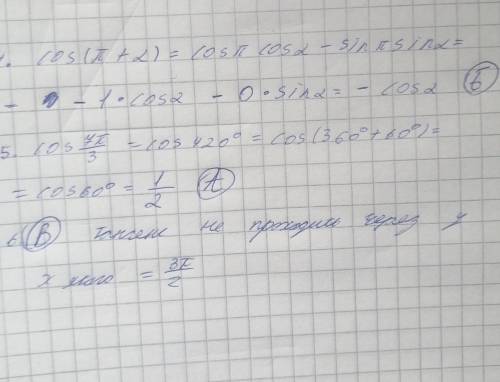 4. cos(π + α) = cosπ cosα - sinπ sinα =
- - 1 · cosα - 0 · sinα = - cosα Б
5. cos 7π/3 = cos 420° = cos(360° + 60°) =
= cos60° = 1/2 А
6. В тангенс не проходит через у
х = 3π/2